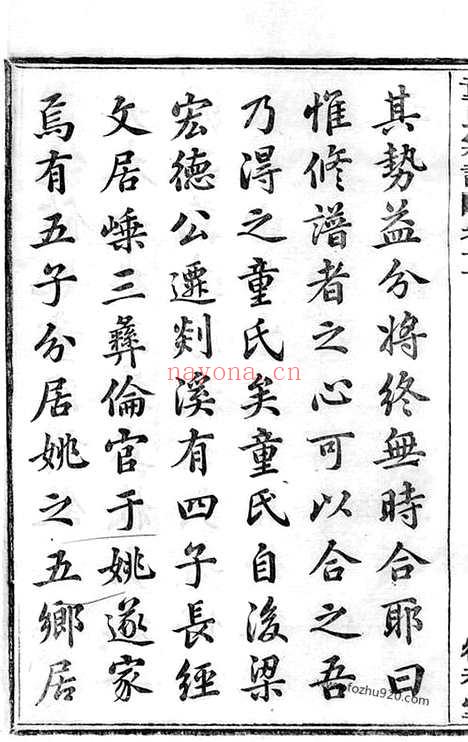 其勢益分將終無時合耶曰
惟修譜者之心可以合之吾
乃得之童氏矣童氏自後梁
宏德公遷剡溪有四子長經
文居嵊三彝倫官于姚遂家
焉有五子分居姚之五鄉居
nayona.cn
www.fozhu920.com